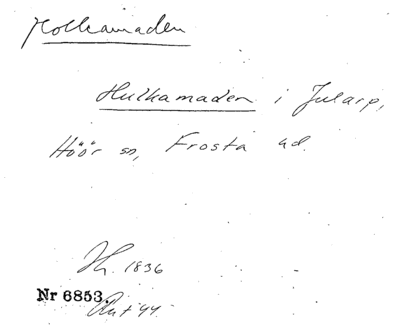 Holkamaden
Hulkamaden i Jularp,
Höör sn, Frosta hd.
Jh. 1836
Nr 6853.
Akt 44